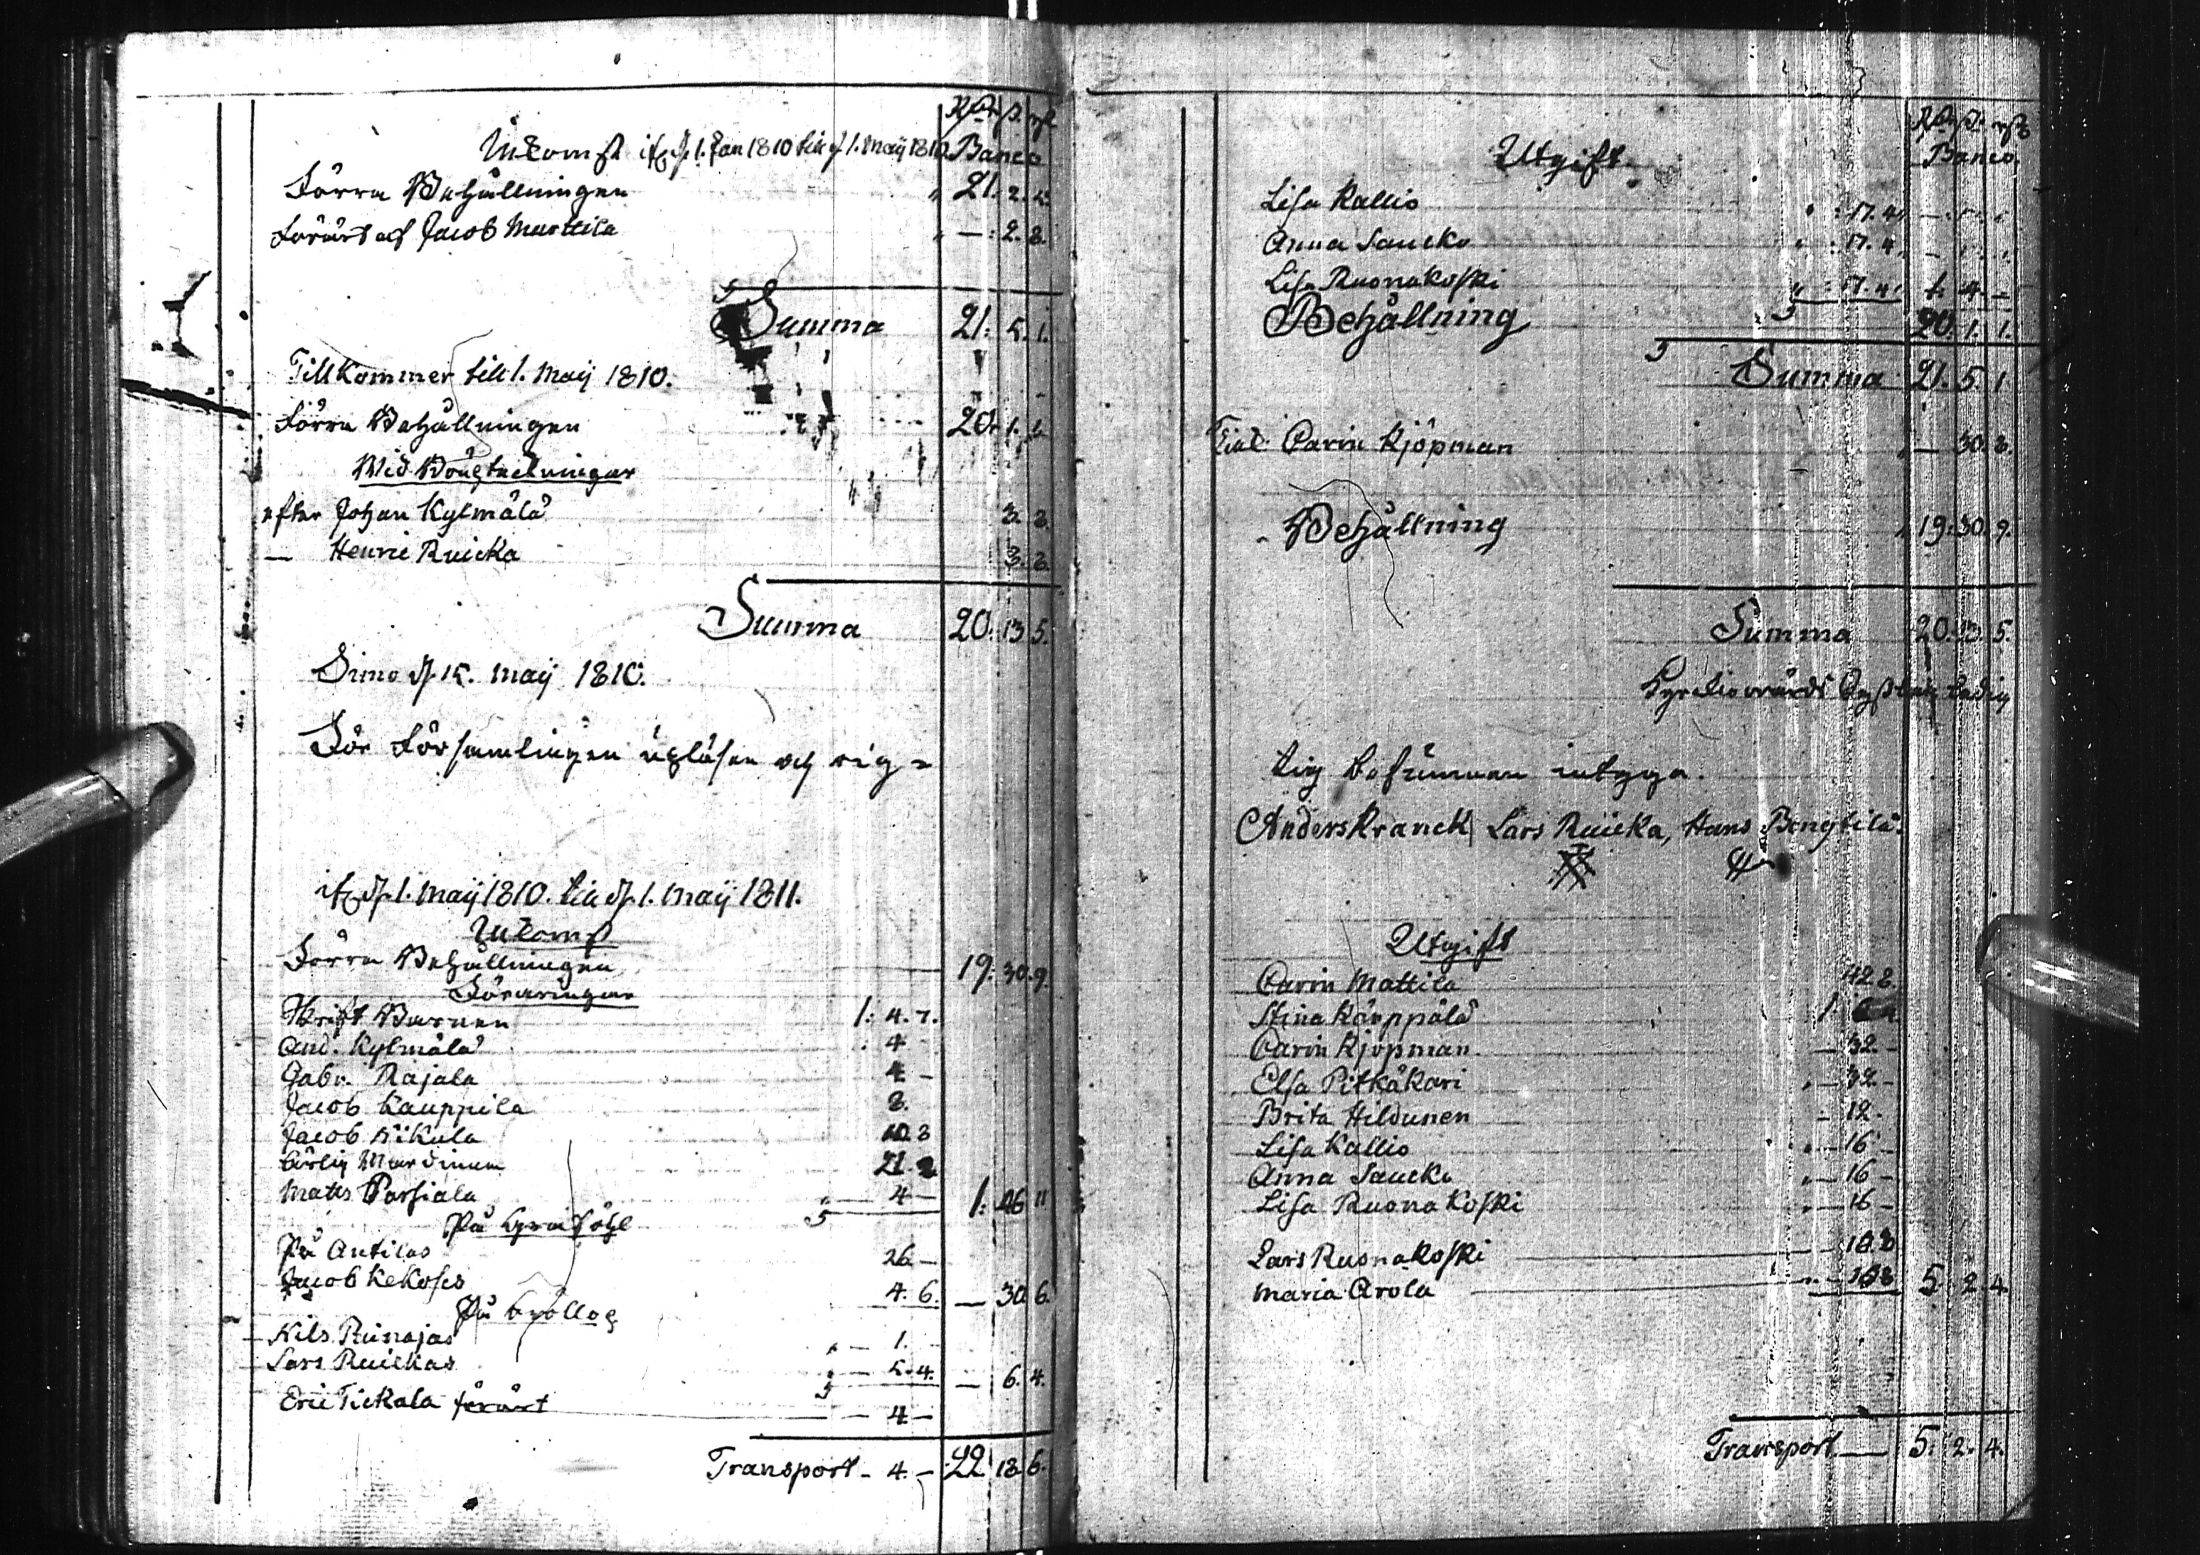 Rdr ß. rst
Inkomst ifr. d. 1. Jan 1810 till d. 1. Maij 1810 Banco
Förra Behållningen " 21. 2. 5.
Förärt af Jacob Marttila " — : 2. 8.
Summa 21. 5. 1.
Tillkommer till 1. Maij 1810.
Förra Behållningen 20. 1. 1.
Wid
efter Johan Kylmälä 3. 8.
— Henric Ruicka 3. 8.
Summa 20. 13. 5.
Simo d. 15. Maij 1810.
För Församlingen upläsen och rig=
ifr. d. 1. Maij 1810. till d. 1. Maij 1811.
Inkomst
Förra Behållningen 19. 30. 9.
Föräringar
Skrift Barnen 1: 4. 7.
And. Kylmälä 4
Gabr. Rajala 4 –
Jacob Kauppila 8.
Jacob Kikula 10. 8
21.
Matts Parsiala " — 4 — 1: 46 11
På
På Antilas 26 —
Jacob Kekoses 4. 6. — 30. 6.
På Bröllop
Nils Runajas " — 1.
Lars Ruickas " — 5. 4. — 6. 4.
Eric Tickala förärt — 4 —
Transport – 4. – 22 18 6.
Rdr ß. rst
Utgift Banco
Lisa Kallio " : 17. 4.
Anna Saucko " : 17. 4.
Lisa Ruonakoski " : 17. 4. 1. 4. –
Behållning 20. 1. 1.
Summa 21. 5. 1.
Till Carin Kjöpman " — 30. 8.
Behållning " 19. 30. 9.
Summa 20. 13. 5.
Kyrckiowärds
tig befunnen intyga.
Anders Kranck Lars Ruicka, Hans Bengtila.
Utgift
Carin Mattila 42 8.
Stina Käuppälä 1:
Carin Kjöpman — 32 –
Elsa Pitkäkari " — 32 –
Brita Hildunen – 12 –
Lisa Kallio " — 16 –
Anna Saucko " — 16 –
Lisa Ruonakoski " — 16 –
Lars Ruonakoski — 10 8
Maria Arola " — 10 8 5. 2. 4
Transport — 5. 2. 4.